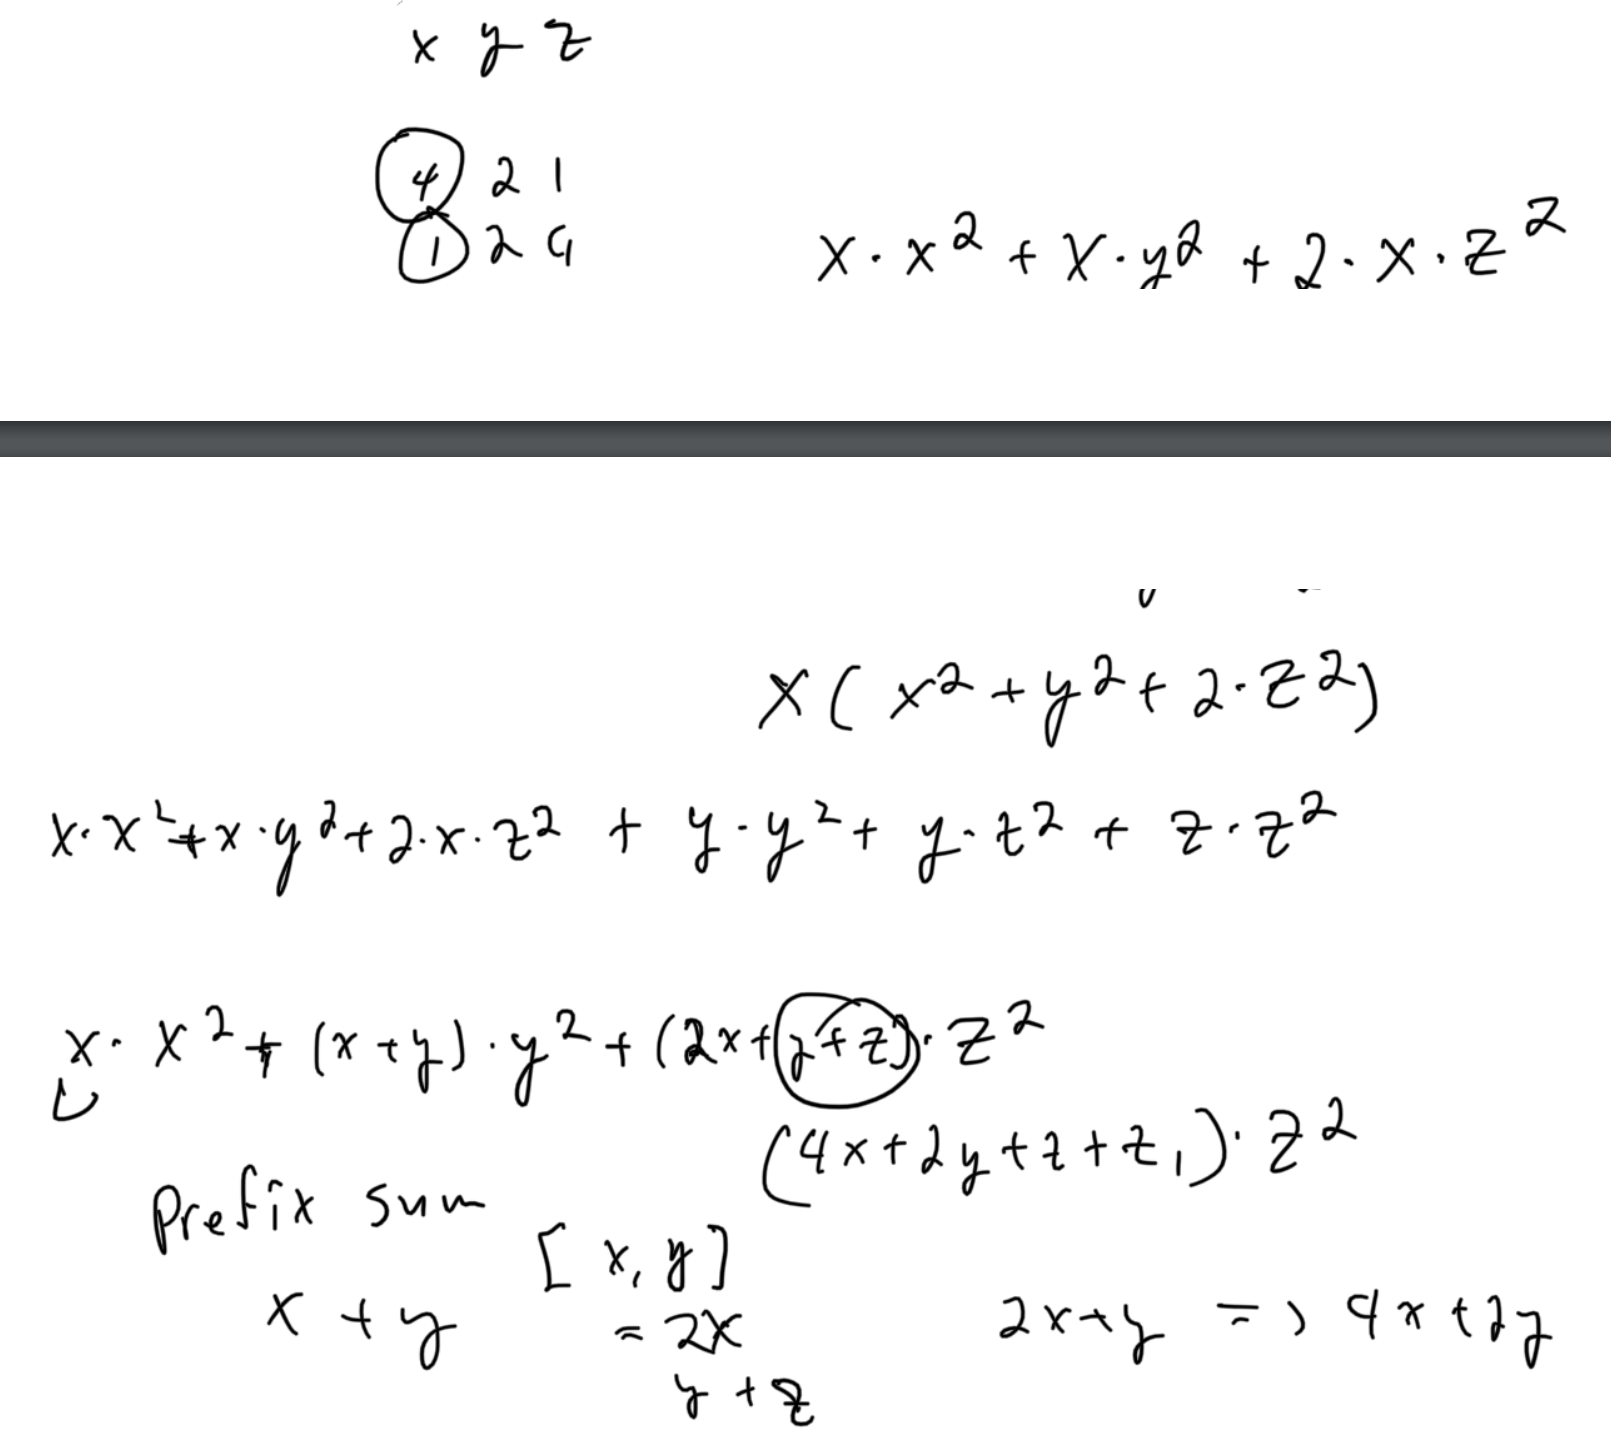 x y z
4 2 1
1 2 4
x · x² + x · y² + 2 · x · z²
x ( x² + y² + 2 · z² )
x · x² + x · y² + 2 · x · z² + y · y² + y · z² + z · z²
x · x² + (x + y) · y² + (2x + y + z) · z²
(4x + 2y + z + z₁) · z²
Prefix sum
[ x, y ]
x + y
= 2x
2x + y => 4x + 2y
y + z